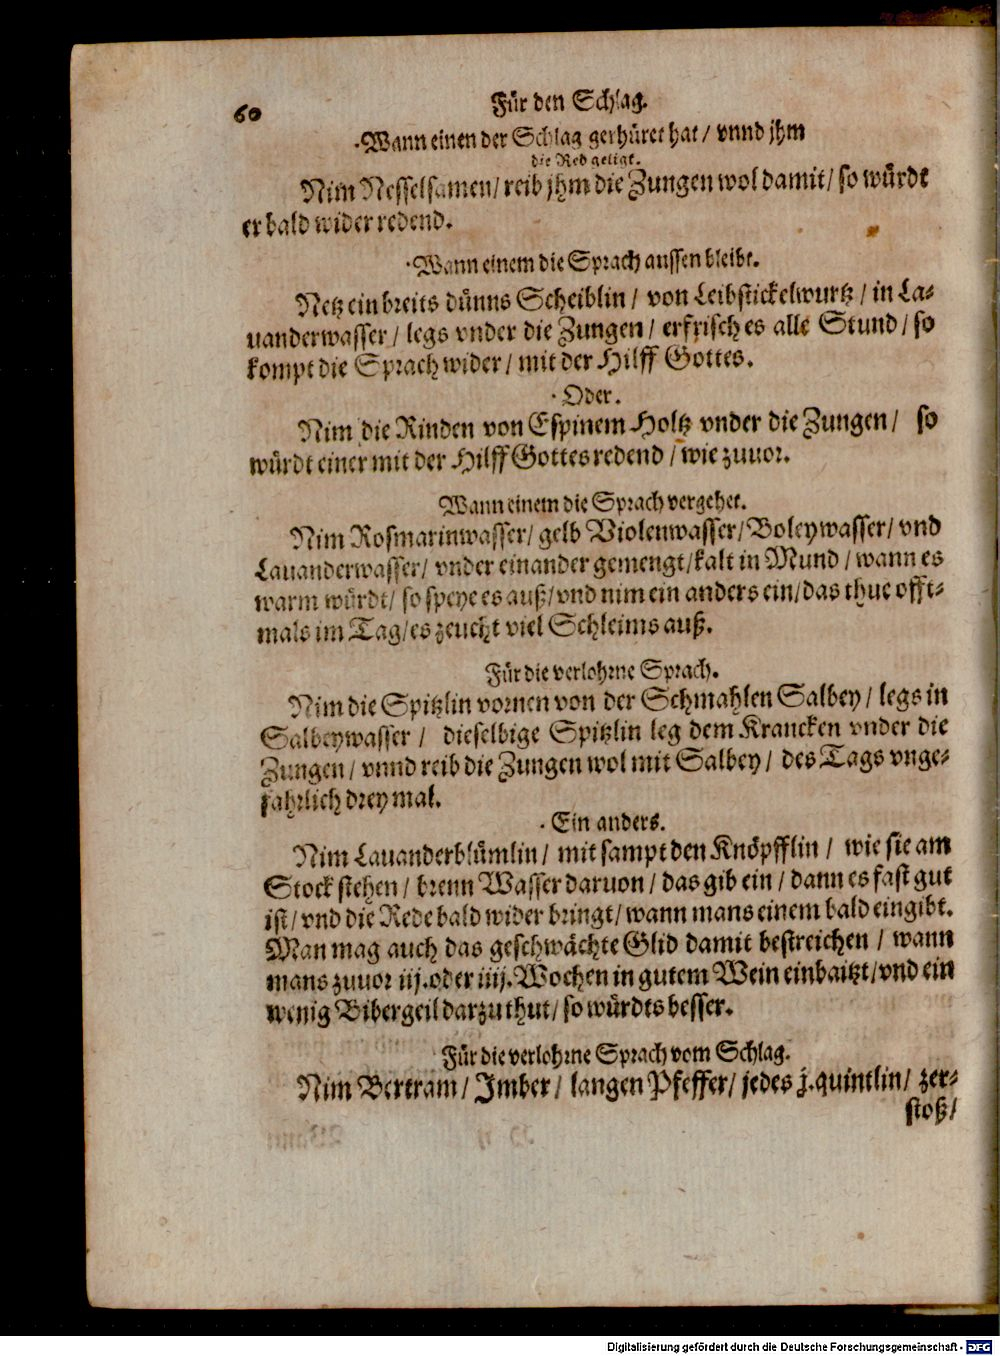 60
Für den Schlag.
Wann einen der Schlag gerhüret hat / vnnd jhm
die Red geligt.
Nim Nesselsamen / reib jhm die Zungen wol damit / so würdt
er bald wider redend.
Wann einem die Sprach aussen bleibt.
Netz ein breits dünns Scheiblin / von Leibstickelwurtz / in La-
uanderwasser / legs vnder die Zungen / erfrisch es alle Stund / so
kompt die Sprach wider / mit der Hilff Gottes.
Oder.
Nim die Rinden von Espinem Holtz vnder die Zungen / so
würdt einer mit der Hilff Gottes redend / wie zuuor.
Wann einem die Sprach vergehet.
Nim Rosmarinwasser / gelb Violenwasser / Boleywasser / vnd
Lauanderwasser / vnder einander gemengt / kalt in Mund / wann es
warm würdt / so speye es auß / vnd nim ein anders ein / das thue offt-
mals im Tag / es zeucht viel Schleims auß.
Für die verlohrne Sprach.
Nim die Spitzlin vornen von der Schmahlen Salbey / legs in
Salbeywasser / dieselbige Spitzlin leg dem Krancken vnder die
Zungen / vnnd reib die Zungen wol mit Salbey / des Tags vnge-
fahrlich drey mal.
Ein anders.
Nim Lauanderblümlin / mit sampt den Knöpfflin / wie sie am
Stock stehen / brenn Wasser daruon / das gib ein / dann es fast gut
ist / vnd die Rede bald wider bringt / wann mans einem bald eingibt.
Man mag auch das geschwächte Glid damit bestreichen / wann
mans zuuor iij. oder iiij. Wochen in gutem Wein einbaitzt / vnd ein
wenig Bibergeil darzu thut / so würdts besser.
Für die verlohrne Sprach vom Schlag.
Nim Bertram / Imber / langen Pfeffer / jedes j. quintlin / zer-
stoß /
Digitalisierung gefördert durch die Deutsche Forschungsgemeinschaft - DFG